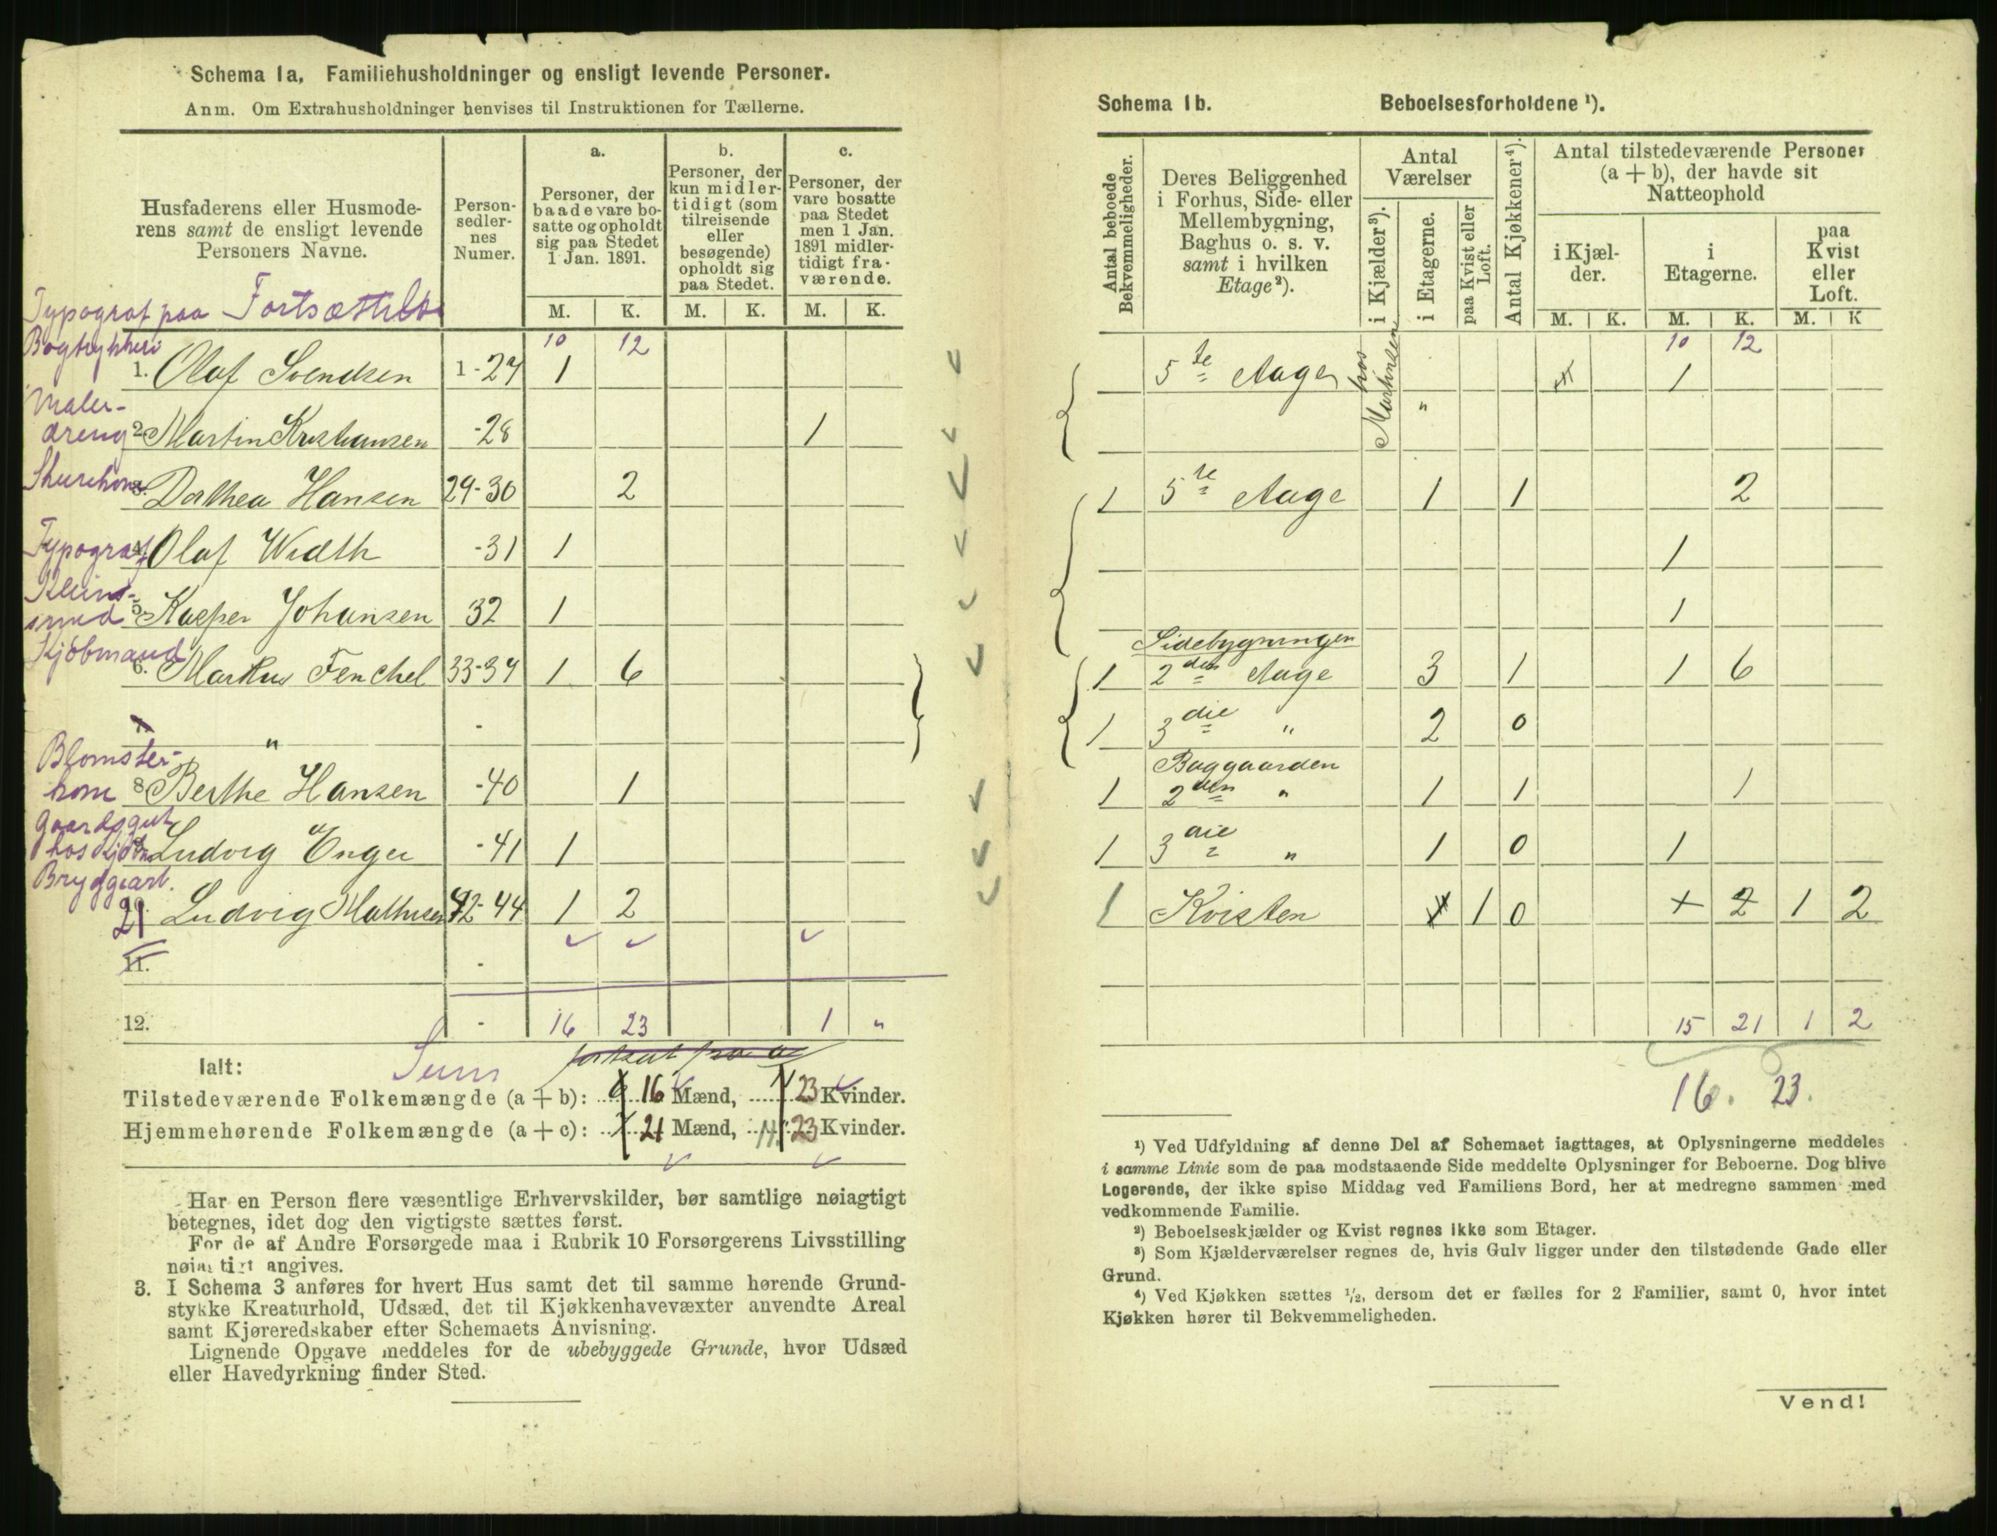 Schema 1a, Familiehusholdninger og ensligt levende Personer.
Anm. Om Extrahusholdninger henvises til Instruktionen for Tællerne.
Husfaderens eller Husmode-
rens samt de ensligt levende
Personers Navne.
Person-
sedler-
nes
Numer.
a.
Personer, der
baade vare bo-
satte og opholdt
sig paa Stedet
1 Jan. 1891.
b.
Personer, der
kun midler-
tidigt (som
tilreisende
eller
besøgende)
opholdt sig
paa Stedet.
c.
Personer, der
vare bosatte
paa Stedet
men 1 Jan.
1891 midler-
tidigt fra-
værende.
M. K. M. K. M. K.
Typograf paa Fortsættelse
Bogtrykkeri 10 12
1. Olaf Svendsen 1-27 1
Maler-
dreng 2. Martin Kristiansen -28 1
3. Dorthea Hansen 29-30 2
Typograf 4. Olaf Width -31 1
Klein-
smed 5. Kasper Johansen 32 1
Kjöbmand
6. Markus Fenchel 33-39 1 6
" -
Blomster-
kone 8 Berthe Hansen -40 1
Gaardsgut
hos Kjöbm Ludvig Enger -41 1
Bryggeart.
21. Ludvig Mathisen 42-44 1 2
11. -
12. - 16 23 1 "
Ialt: Sum
Tilstedeværende Folkemængde (a + b): 16 Mænd, 23 Kvinder.
Hjemmehørende Folkemængde (a + c): 21 Mænd, 23 Kvinder.
Har en Person flere væsentlige Erhvervskilder, bør samtlige nøiagtigt
betegnes, idet dog den vigtigste sættes først.
For de af Andre Forsørgede maa i Rubrik 10 Forsørgerens Livsstilling
nøiagtigt angives.
3. I Schema 3 anføres for hvert Hus samt det til samme hørende Grund-
stykke Kreaturhold, Udsæd, det til Kjøkkenhavevæxter anvendte Areal
samt Kjøreredskaber efter Schemaets Anvisning.
Lignende Opgave meddeles for de ubebyggede Grunde, hvor Udsæd
eller Havedyrkning finder Sted.
Schema 1b. Beboelsesforholdene ¹).
Antal beboede
Bekvemmeligheder.
Deres Beliggenhed
i Forhus, Side- eller
Mellembygning,
Baghus o. s. v.
samt i hvilken
Etage²).
Antal
Værelser
i Kjælder³).
i Etagerne.
paa Kvist eller
Loft.
Antal Kjøkkener⁴).
Antal tilstedeværende Personer
(a + b), der havde sit
Natteophold
i Kjæl-
der.
i
Etagerne.
paa
Kvist
eller
Loft.
M. K. M. K. M. K
10 12
5te Etage hos Martinsen 1
"
1 5te Etage 1 1 2
1
1
Sidebygningen
1 2den Etage 3 1 1 6
1 3die " 2 0
Baggaarden
1 2den " 1 1 1
1 3die " 1 0 1
1 Kvisten 1 0 2 1 2
15 21 1 2
16. 23.
¹) Ved Udfyldning af denne Del af Schemaet iagttages, at Oplysningerne meddeles
i samme Linie som de paa modstaaende Side meddelte Oplysninger for Beboerne. Dog blive
Logerende, der ikke spise Middag ved Familiens Bord, her at medregne sammen med
vedkommende Familie.
²) Beboelseskjælder og Kvist regnes ikke som Etager.
³) Som Kjælderværelser regnes de, hvis Gulv ligger under den tilstødende Gade eller
Grund.
⁴) Ved Kjøkken sættes ¹/₂, dersom det er fælles for 2 Familier, samt 0, hvor intet
Kjøkken hører til Bekvemmeligheden.
Vend!